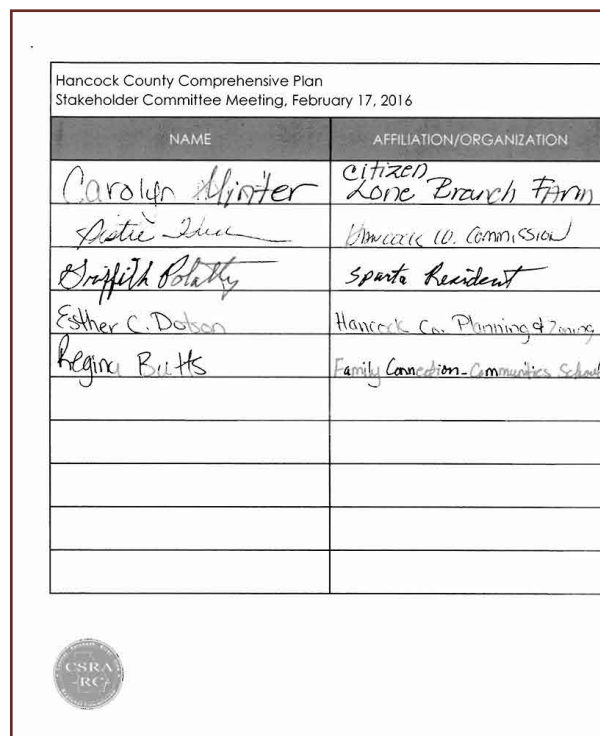 Hancock County Comprehensive Plan
Stakeholder Committee Meeting, February 17, 2016
NAME AFFILIATION/ORGANIZATION
Carolyn Minter Citizen
Lone Branch Farm
Hancock Co. Commission
Griffith Polatty Sparta Resident
Esther C. Dotson Hancock Co. Planning & Zoning
Regina Butts Family Connection - Communities
CSRA
RC